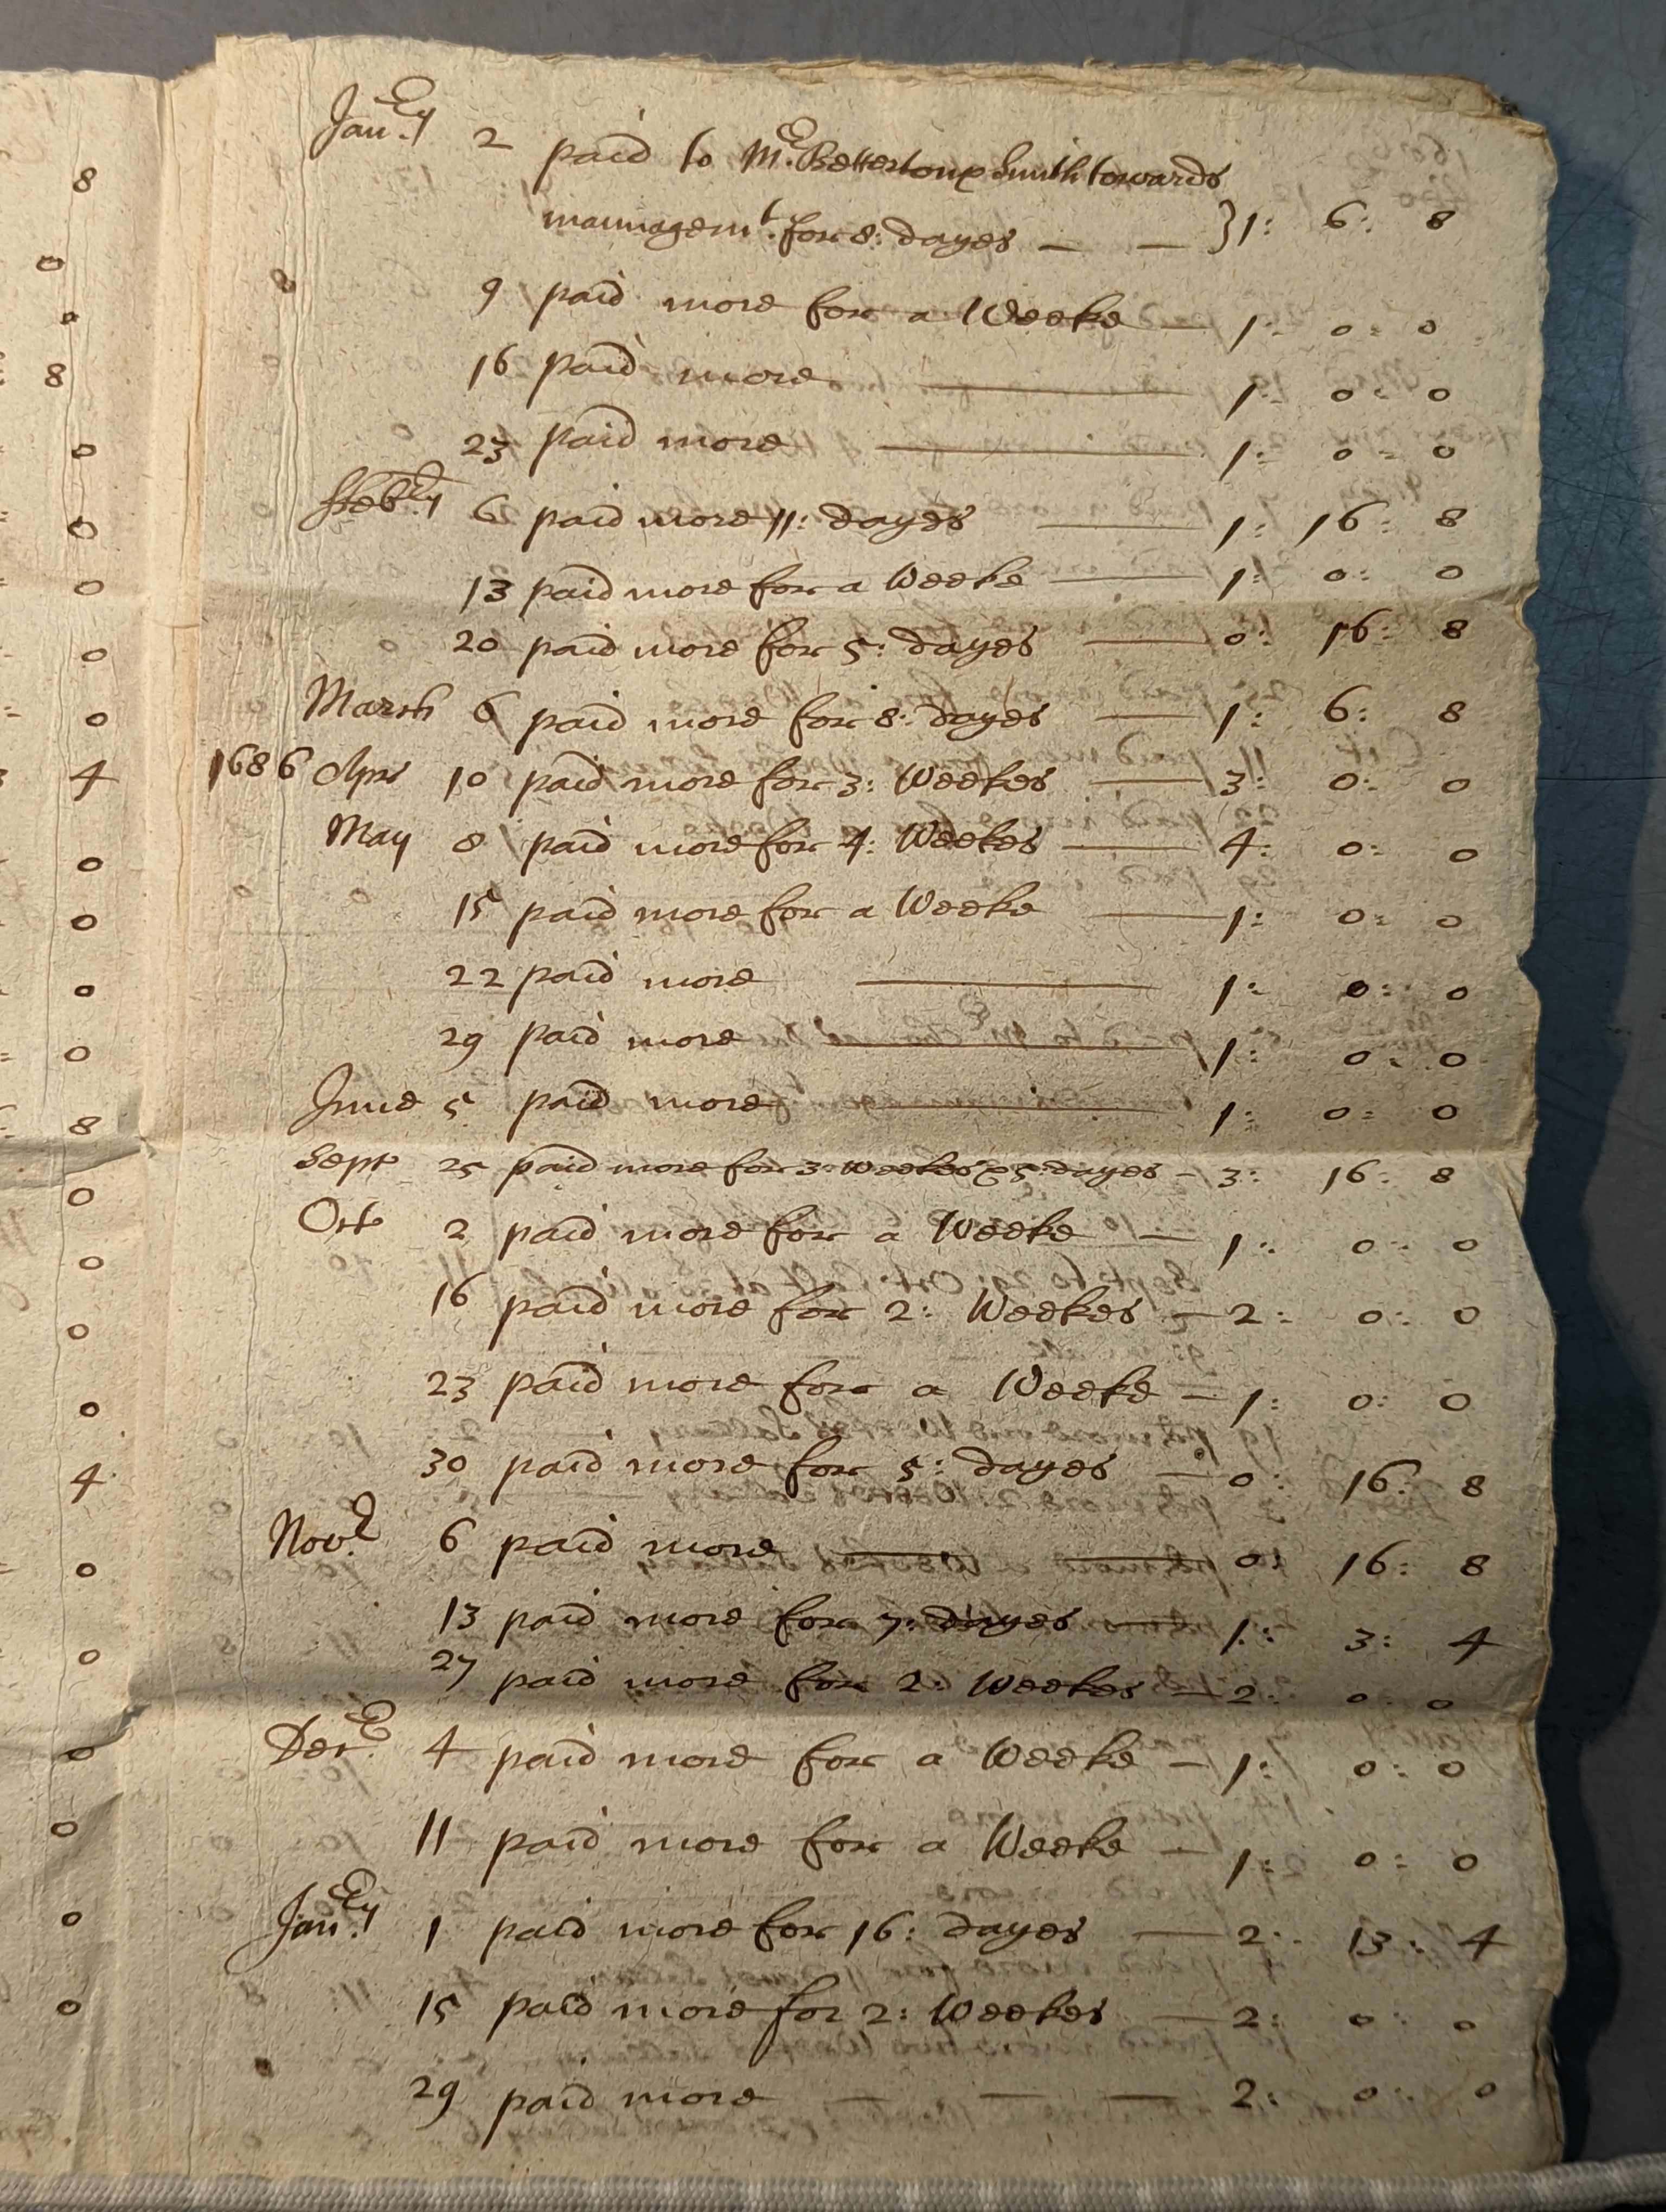 Jan:ry 2 paid to Mr: Betterton & Smith towards
mannagemt: for 8: dayes — — } 1: 6: 8
9 paid more for a Weeke — 1: 0: 0
16 paid more — 1: 0: 0
23 paid more — 1: 0: 0
ffeb:ry 6 paid more 11: dayes — 1: 16: 8
13 paid more for a Weeke — 1: 0: 0
20 paid more for 5: dayes — 0: 16: 8
March 6 paid more for 8: dayes — 1: 6: 8
1686 Apr 10 paid more for 3: Weekes — 3: 0: 0
May 8 paid more for 4: Weekes — 4: 0: 0
15 paid more for a Weeke — 1: 0: 0
22 paid more — 1: 0: 0
29 paid more — 1: 0: 0
June 5 paid more — 1: 0: 0
Sept 25 paid more for 3: weekes & 5: dayes — 3: 16: 8
Oct 2 paid more for a Weeke — 1: 0: 0
16 paid more for 2: Weekes — 2: 0: 0
23 paid more for a Weeke — 1: 0: 0
30 paid more for 5: dayes — 0: 16: 8
Nov:r 6 paid more — — 0: 16: 8
13 paid more for 7: dayes — 1: 3: 4
27 paid more for 2: Weekes — 2: 0: 0
Dec:r 4 paid more for a Weeke — 1: 0: 0
11 paid more for a Weeke — 1: 0: 0
Jan:ry 1 paid more for 16: dayes — 2: 13: 4
15 paid more for 2: Weekes — 2: 0: 0
29 paid more — — — 2: 0: 0